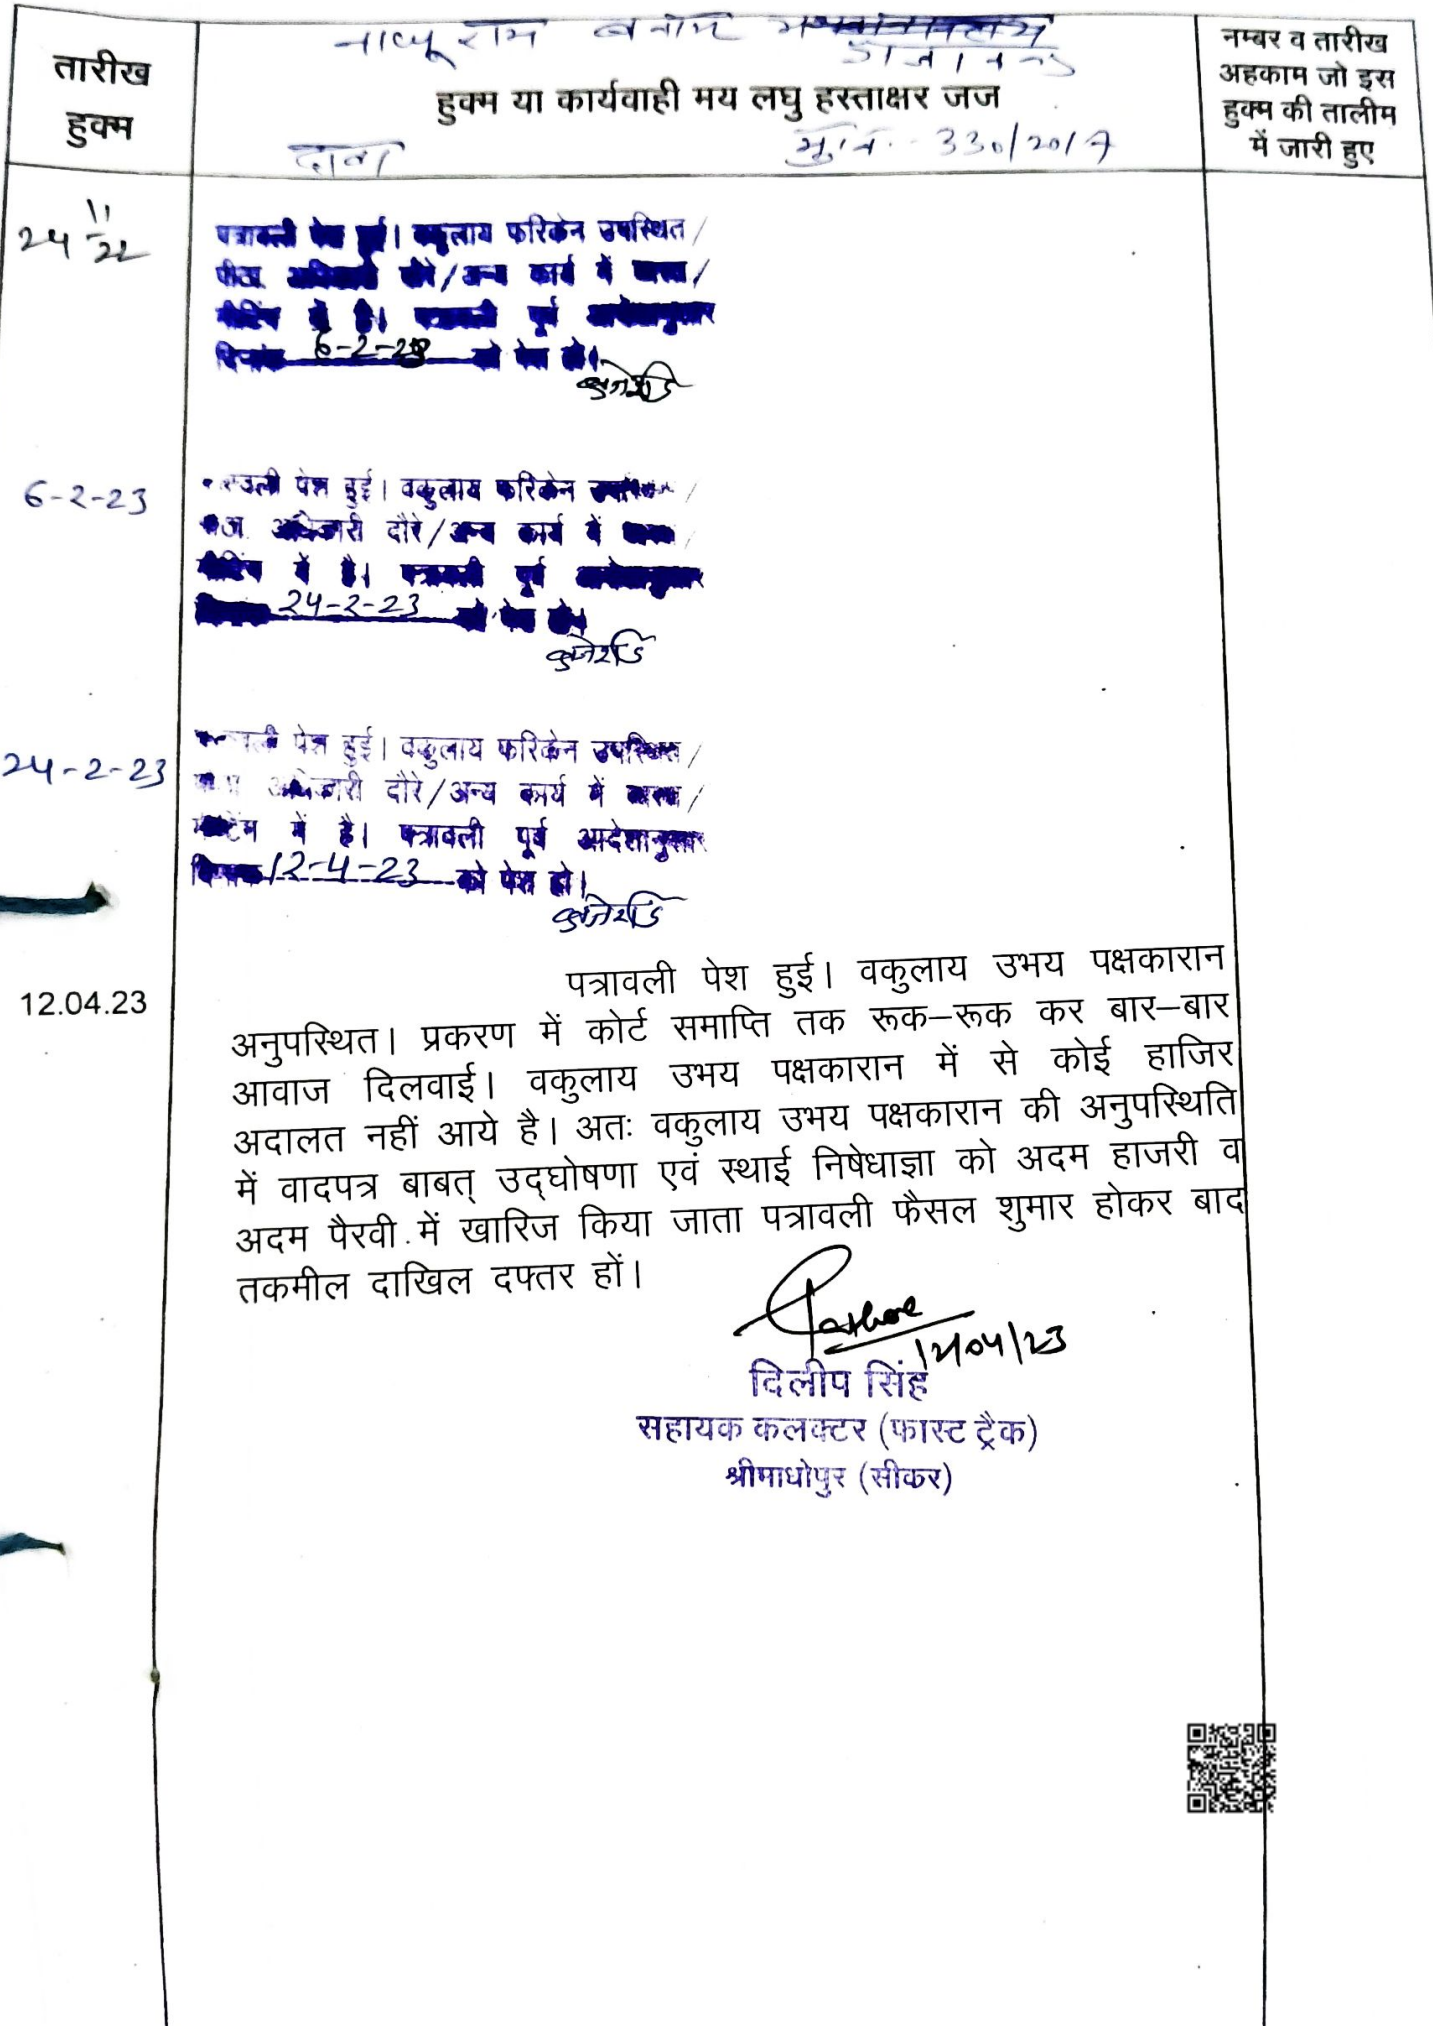 नाथूराम बनाम
तारीख
हुक्म
हुक्म या कार्यवाही मय लघु हस्ताक्षर जज
नम्बर व तारीख
अहकाम जो इस
हुक्म की तालीम
में जारी हुए
दावा
330/2017
24 11/22
पत्रावली पेश हुई। वकुलाय फरिकेन उपस्थित/
अधिकारी दौरे/अन्य कार्य में व्यस्त/
मीटिंग में है। पत्रावली पूर्व आदेशानुसार
दिनांक 6-2-23 को पेश हो।
6-2-23
पेश हुई। वकुलाय फरिकेन उपस्थित/
अधिकारी दौरे/अन्य कार्य में व्यस्त/
मीटिंग में है। पत्रावली पूर्व आदेशानुसार
दिनांक 24-2-23 को पेश हो।
24-2-23
पेश हुई। वकुलाय फरिकेन उपस्थित/
अधिकारी दौरे/अन्य कार्य में व्यस्त/
मीटिंग में है। पत्रावली पूर्व आदेशानुसार
दिनांक 12-4-23 को पेश हो।
12.04.23
पत्रावली पेश हुई। वकुलाय उभय पक्षकारान
अनुपस्थित। प्रकरण में कोर्ट समाप्ति तक रूक–रूक कर बार–बार
आवाज दिलवाई। वकुलाय उभय पक्षकारान में से कोई हाजिर
अदालत नहीं आये है। अतः वकुलाय उभय पक्षकारान की अनुपस्थिति
में वादपत्र बाबत् उद्घोषणा एवं स्थाई निषेधाज्ञा को अदम हाजरी व
अदम पैरवी में खारिज किया जाता पत्रावली फैसल शुमार होकर बाद
तकमील दाखिल दफ्तर हों।
12/04/23
दिलीप सिंह
सहायक कलक्टर (फास्ट ट्रैक)
श्रीमाधोपुर (सीकर)